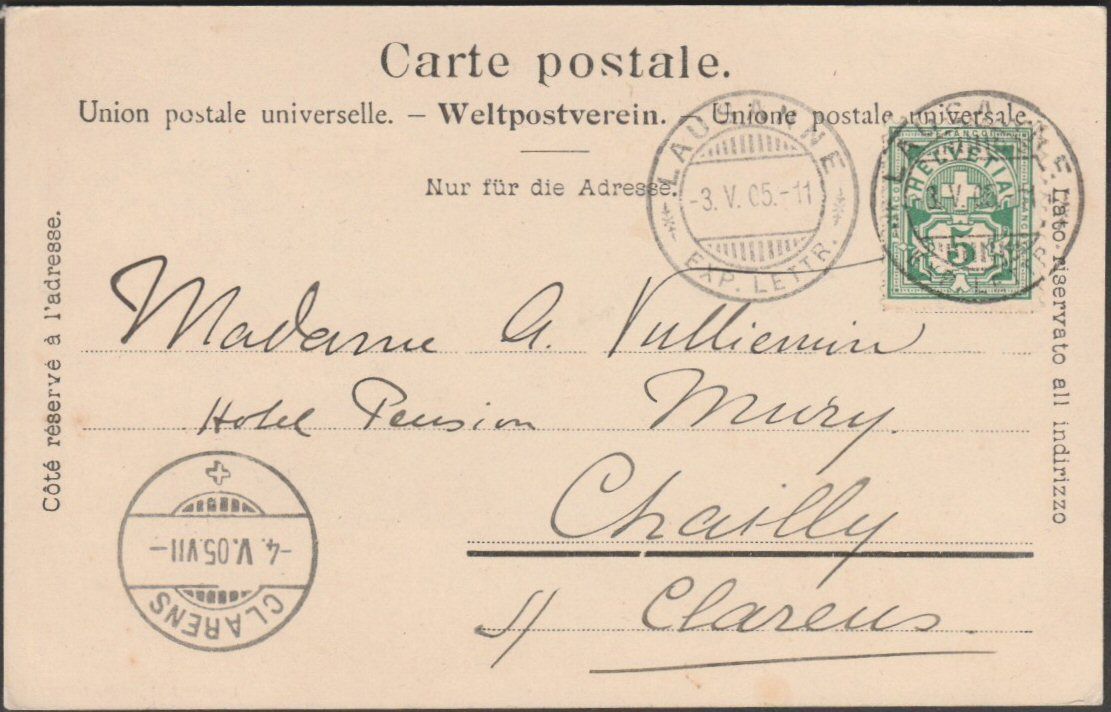 Carte postale.
Union postale universelle. – Weltpostverein. – Unione postale universale.
Nur für die Adresse.
Côté réservé à l'adresse.
Lato riservato all indirizzo
LAUSANNE
-3. V. 05.-11
EXP. LETTR.
LAUSANNE
3. V. 05.-11
FRANCO
HELVETIA
5
Madame A. Vulliemin
Hotel Pension Mury.
Chailly
s/ Clarens.
-4. V. 05.VII-
CLARENS